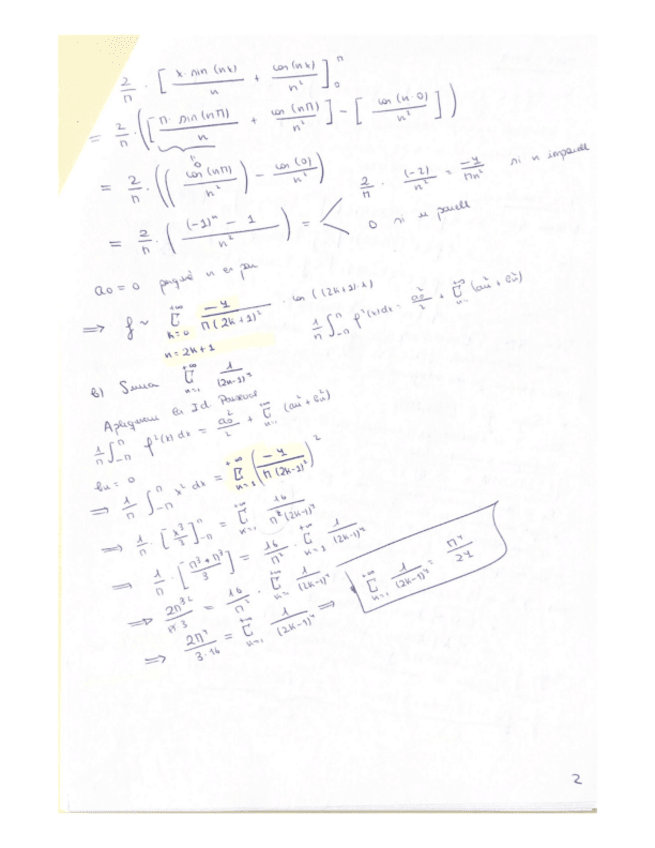 2/π · [ x·sin(nx)/n + cos(nx)/n² ]₀^π
= 2/π · ([ π·sin(nπ)/n + cos(nπ)/n² ] - [ cos(n·0)/n² ])
0
= 2/π · (( cos(nπ)/n² ) - cos(0)/n² )
= 2/π · ( ((-1)ⁿ - 1)/n² ) = < 2/π · (-2)/n² = -4/(πn²) si n
0 si n
a₀ = 0 n es
⟹ f ~ Σ_{k=0}^{+∞} -4/(π(2k+1)²) · cos((2k+1)·x)
n = 2k+1
1/π ∫_{-π}^{π} f²(x)dx = a₀²/2 + Σ_{n=1}^{+∞} (aₙ² + bₙ²)
b) Suma Σ_{n=1}^{+∞} 1/(2n-1)⁴
Id. Parseval
1/π ∫_{-π}^{π} f²(x) dx = a₀²/2 + Σ_{n=1}^{+∞} (aₙ² + bₙ²)
bₙ = 0
⟹ 1/π ∫_{-π}^{π} x² dx = Σ_{k=1}^{+∞} ( -4/(π(2k-1)²) )²
⟹ 1/π · [ x³/3 ]_{-π}^{π} = Σ_{k=1}^{+∞} 16/(π²(2k-1)⁴)
⟹ 1/π · [ (π³+π³)/3 ] = 16/π² · Σ_{k=1}^{+∞} 1/(2k-1)⁴
⟹ 2π³/(π·3) = 16/π² · Σ_{k=1}^{+∞} 1/(2k-1)⁴
⟹ 2π⁴/(3·16) = Σ_{k=1}^{+∞} 1/(2k-1)⁴ ⟹ Σ_{k=1}^{+∞} 1/(2k-1)⁴ = π⁴/24
2